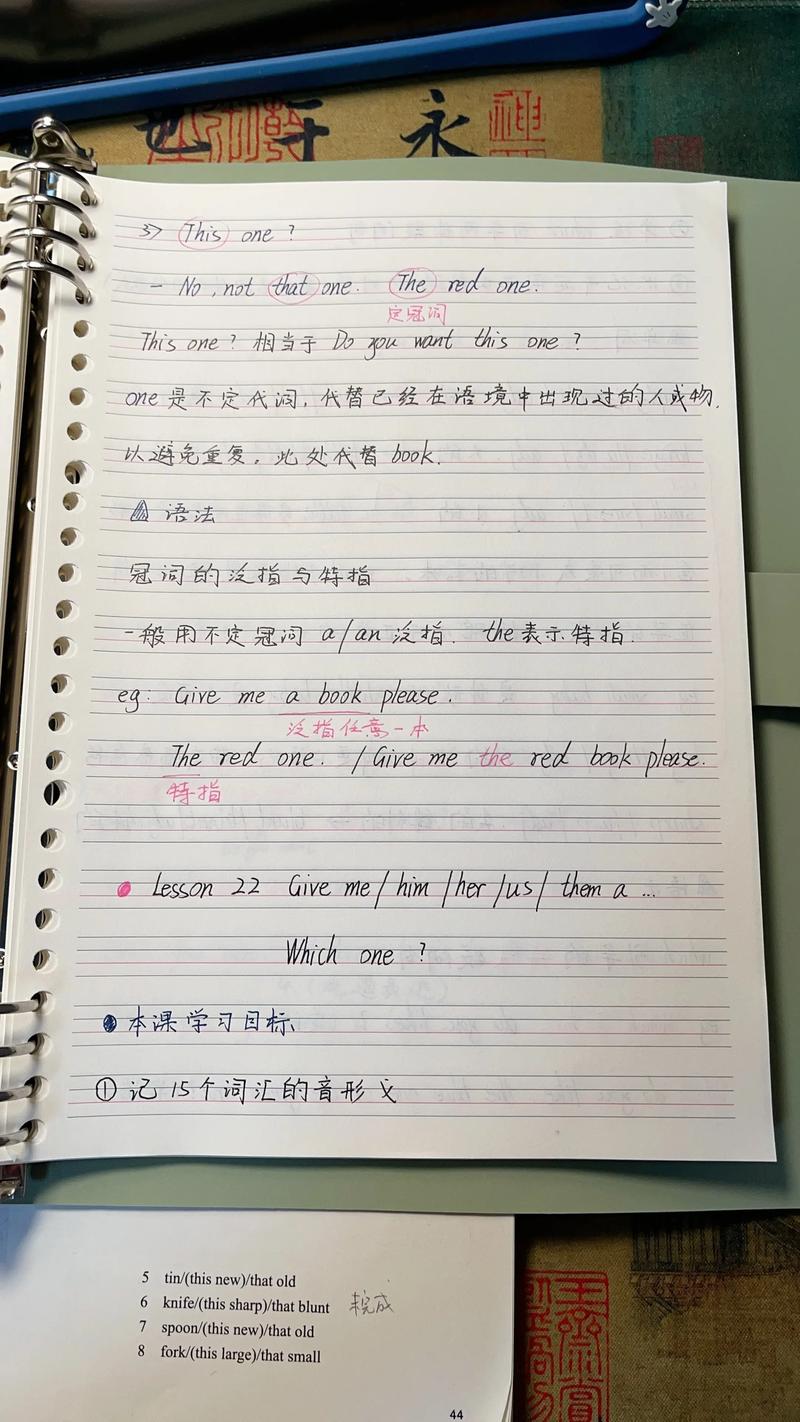 永
3> This one ?
- No, not that one. The red one.
定冠词
This one ? 相当于 Do you want this one ?
one 是不定代词, 代替已经在语境中出现过的人或物,
以避免重复, 此处代替 book.
语法
冠词的泛指与特指
一般用不定冠词 a/an 泛指. the 表示特指.
eg: Give me a book please.
泛指任意一本
The red one. / Give me the red book please.
特指
Lesson 22 Give me / him / her / us / them a ...
Which one ?
本课学习目标
① 记 15个词汇的音形义
5 tin/(this new)/that old
6 knife/(this sharp)/that blunt 完成
7 spoon/(this new)/that old
8 fork/(this large)/that small
44